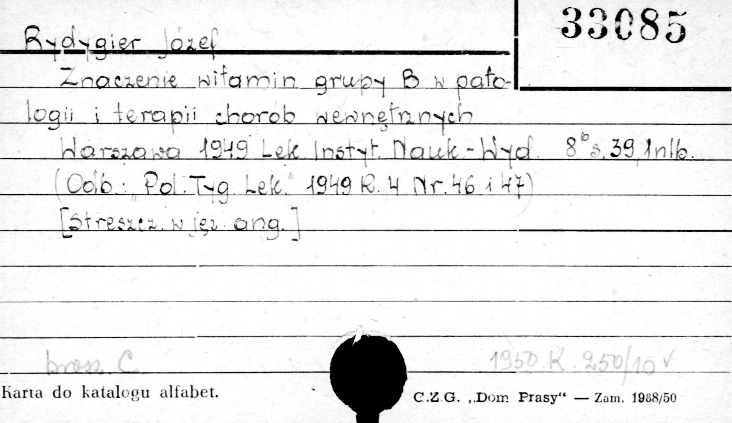 33085
Rydygier Józef
Znaczenie witamin grupy B w pato-
logii i terapii chorób wewnętrznych
Warszawa 1949 Lek. Instyt. Nauk.-Wyd. 8° s. 39, 1 nlb.
(Odb.: "Pol. Tyg. Lek." 1949 R. 4 Nr. 46 i 47)
[Streszcz. w jęz. ang.]
brosz. C. 1950 K. 250/10 v
Karta do katalogu alfabet.
C.Z.G. „Dom Prasy“ — Zam. 1988/50